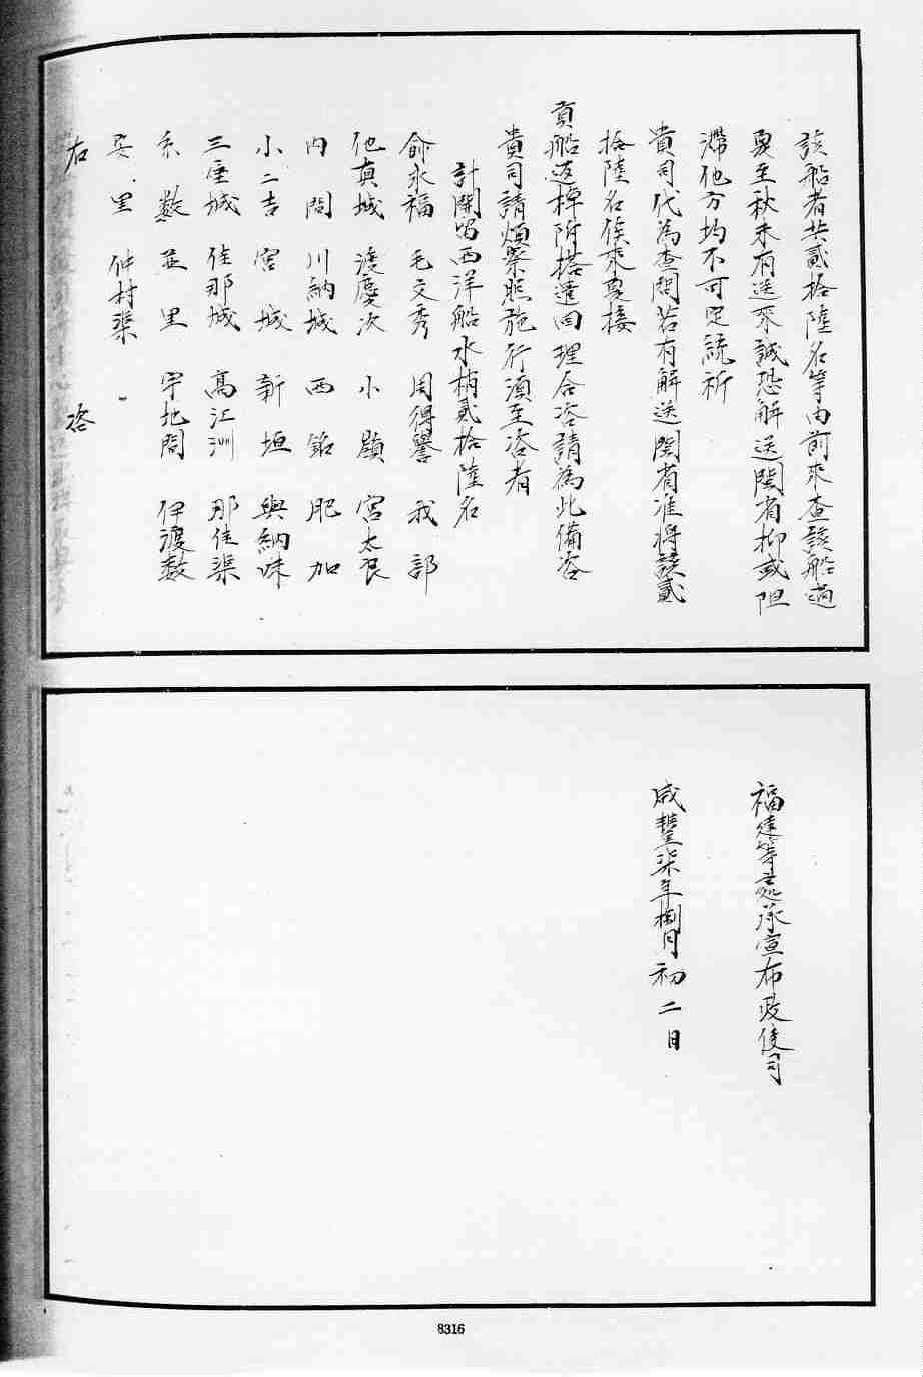 該船者共貳拾陸名等由前來查該船過
夏至秋未有送來誠恐解送閩省抑或阻
滯他方均不可定統祈
貴司代為查問若有解送閩省准將該貳
拾陸名俟來夏接
貢船返棹附搭遣回理合咨請為此備咨
貴司請煩察照施行須至咨者
計開留西洋船水梢貳拾陸名
俞永福 毛文秀 周得譽 我部
他真城 渡慶次 小嶺 宮太良
內間 川納城 西銘 肥加
小二吉 宮城 新垣 與納味
三座城 佳那城 高江洲 那佳渠
系數 並里 宇地間 伊渡數
里 仲村渠
右 咨
福建等處承宣布政使司
咸豐柒年捌月初二日
8316